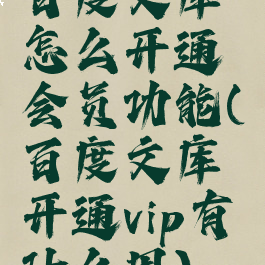 百度文库
怎么开通
会员功能(
百度文库
开通vip有
什么用)